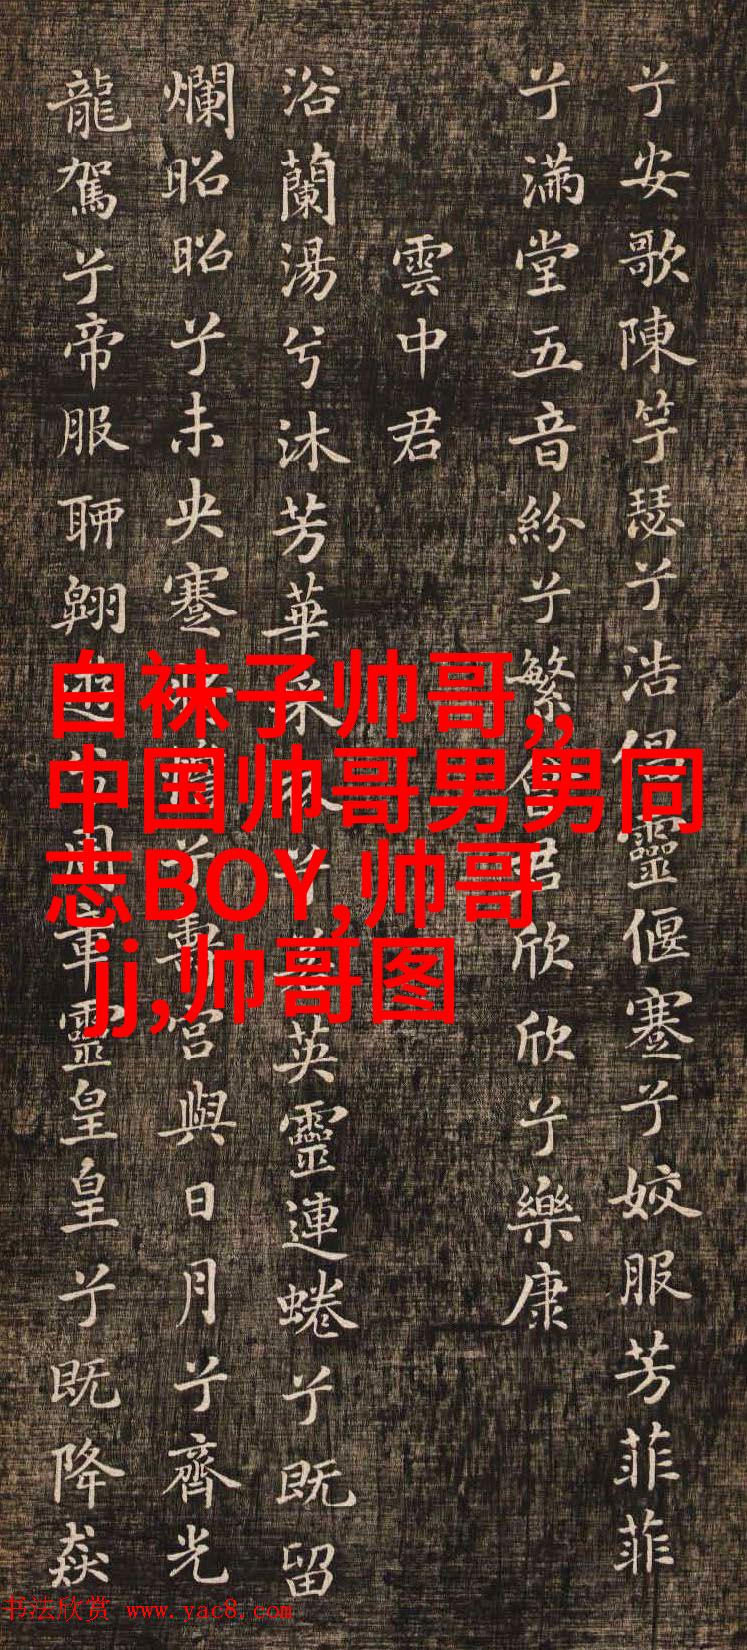 兮安歌陳竽瑟兮浩倡靈偃蹇兮姣服芳菲菲
兮滿堂五音紛兮繁會君欣欣兮樂康
雲中君
浴蘭湯兮沐芳華采衣兮若英靈連蜷兮既留
爛昭昭兮未央蹇將憺兮壽宮與日月兮齊光
龍駕兮帝服聊翱遊兮周章靈皇皇兮既降猋
白袜子帅哥,,
中国帅哥男男同
志BOY,帅哥
jj,帅哥图
书法欣赏 www.yac8.com